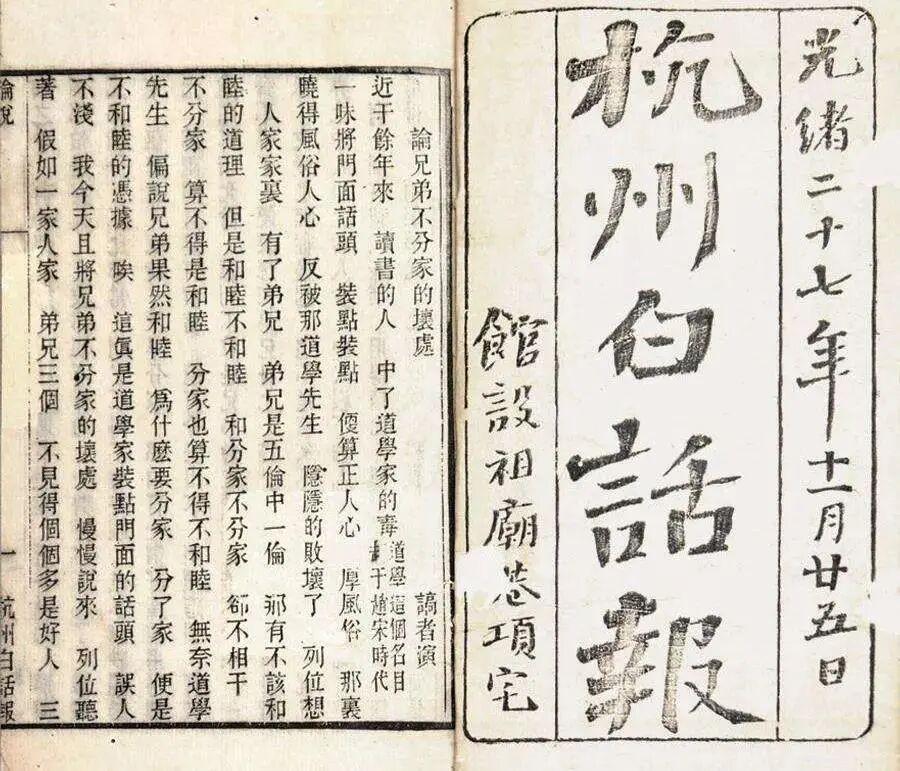 光緒二十七年十一月廿五日
杭州白話報
館設祖廟巷項宅
論兄弟不分家的壞處 謞者演
近千餘年來 讀書的人 中了道學家的毒 道學這個名目
于趙宋時代
一味將門面話頭 裝點裝點 便算正人心 厚風俗 那裏
曉得風俗人心 反被那道學先生 隱隱的敗壞了 列位想
人家家裏 有了弟兄 弟兄是五倫中一倫 那有不該和
睦的道理 但是和睦不和睦 和分家不分家 卻不相干
不分家 算不得是和睦 分家也算不得不和睦 無奈道學
先生 偏說兄弟果然和睦 爲什麽要分家 分了家 便是
不和睦的憑據 唉 這眞是道學家裝點門面的話頭 誤人
不淺 我今天且將兄弟不分家的壞處 慢慢說來 列位聽
著 假如一家人家 弟兄三個 不見得個個多是好人 三
論說 一 杭州白話報